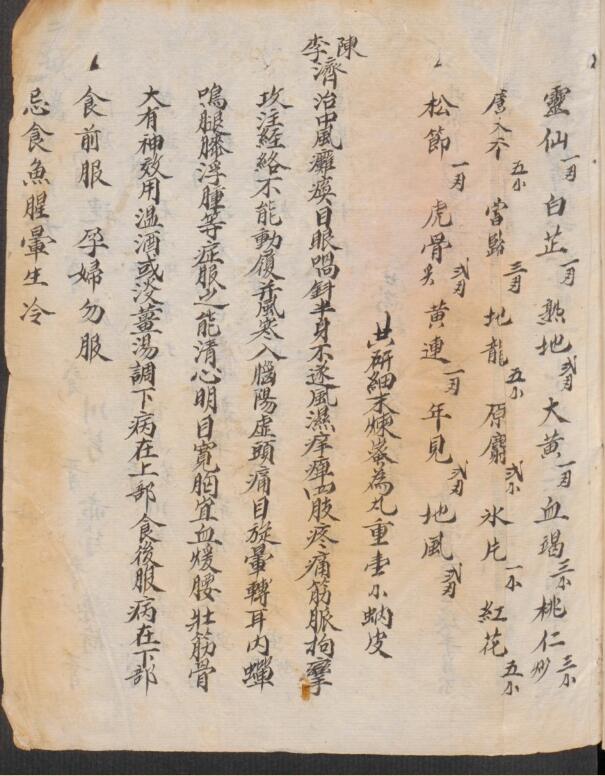 靈仙一刄 白芷一刄 熟地弍刄 大黄一刄 血竭三小 桃仁炒三小
五小 當歸三刄 地龍五小 原麝弍小 氷片一小 紅花五小
松節一刄 虎骨炙弍刄 黄連一刄 年見弍刄 地風弍刄
共研細末煉蜜為丸重壹小蚋皮
陳李濟治中風癱瘓目眼喎斜半身不遂風濕痒痺四肢疼痛筋脈拘攣
攻注経絡不能動履并風寒入腦陽虛頭痛目旋暈轉耳内蟬
鳴腿膝浮腫等症服之能清心明目寬胸宜血煖腰壯筋骨
大有神效用温酒或淡薑湯調下病在上部食後服病在下部
食前服 孕婦勿服
忌食魚腥暈生冷